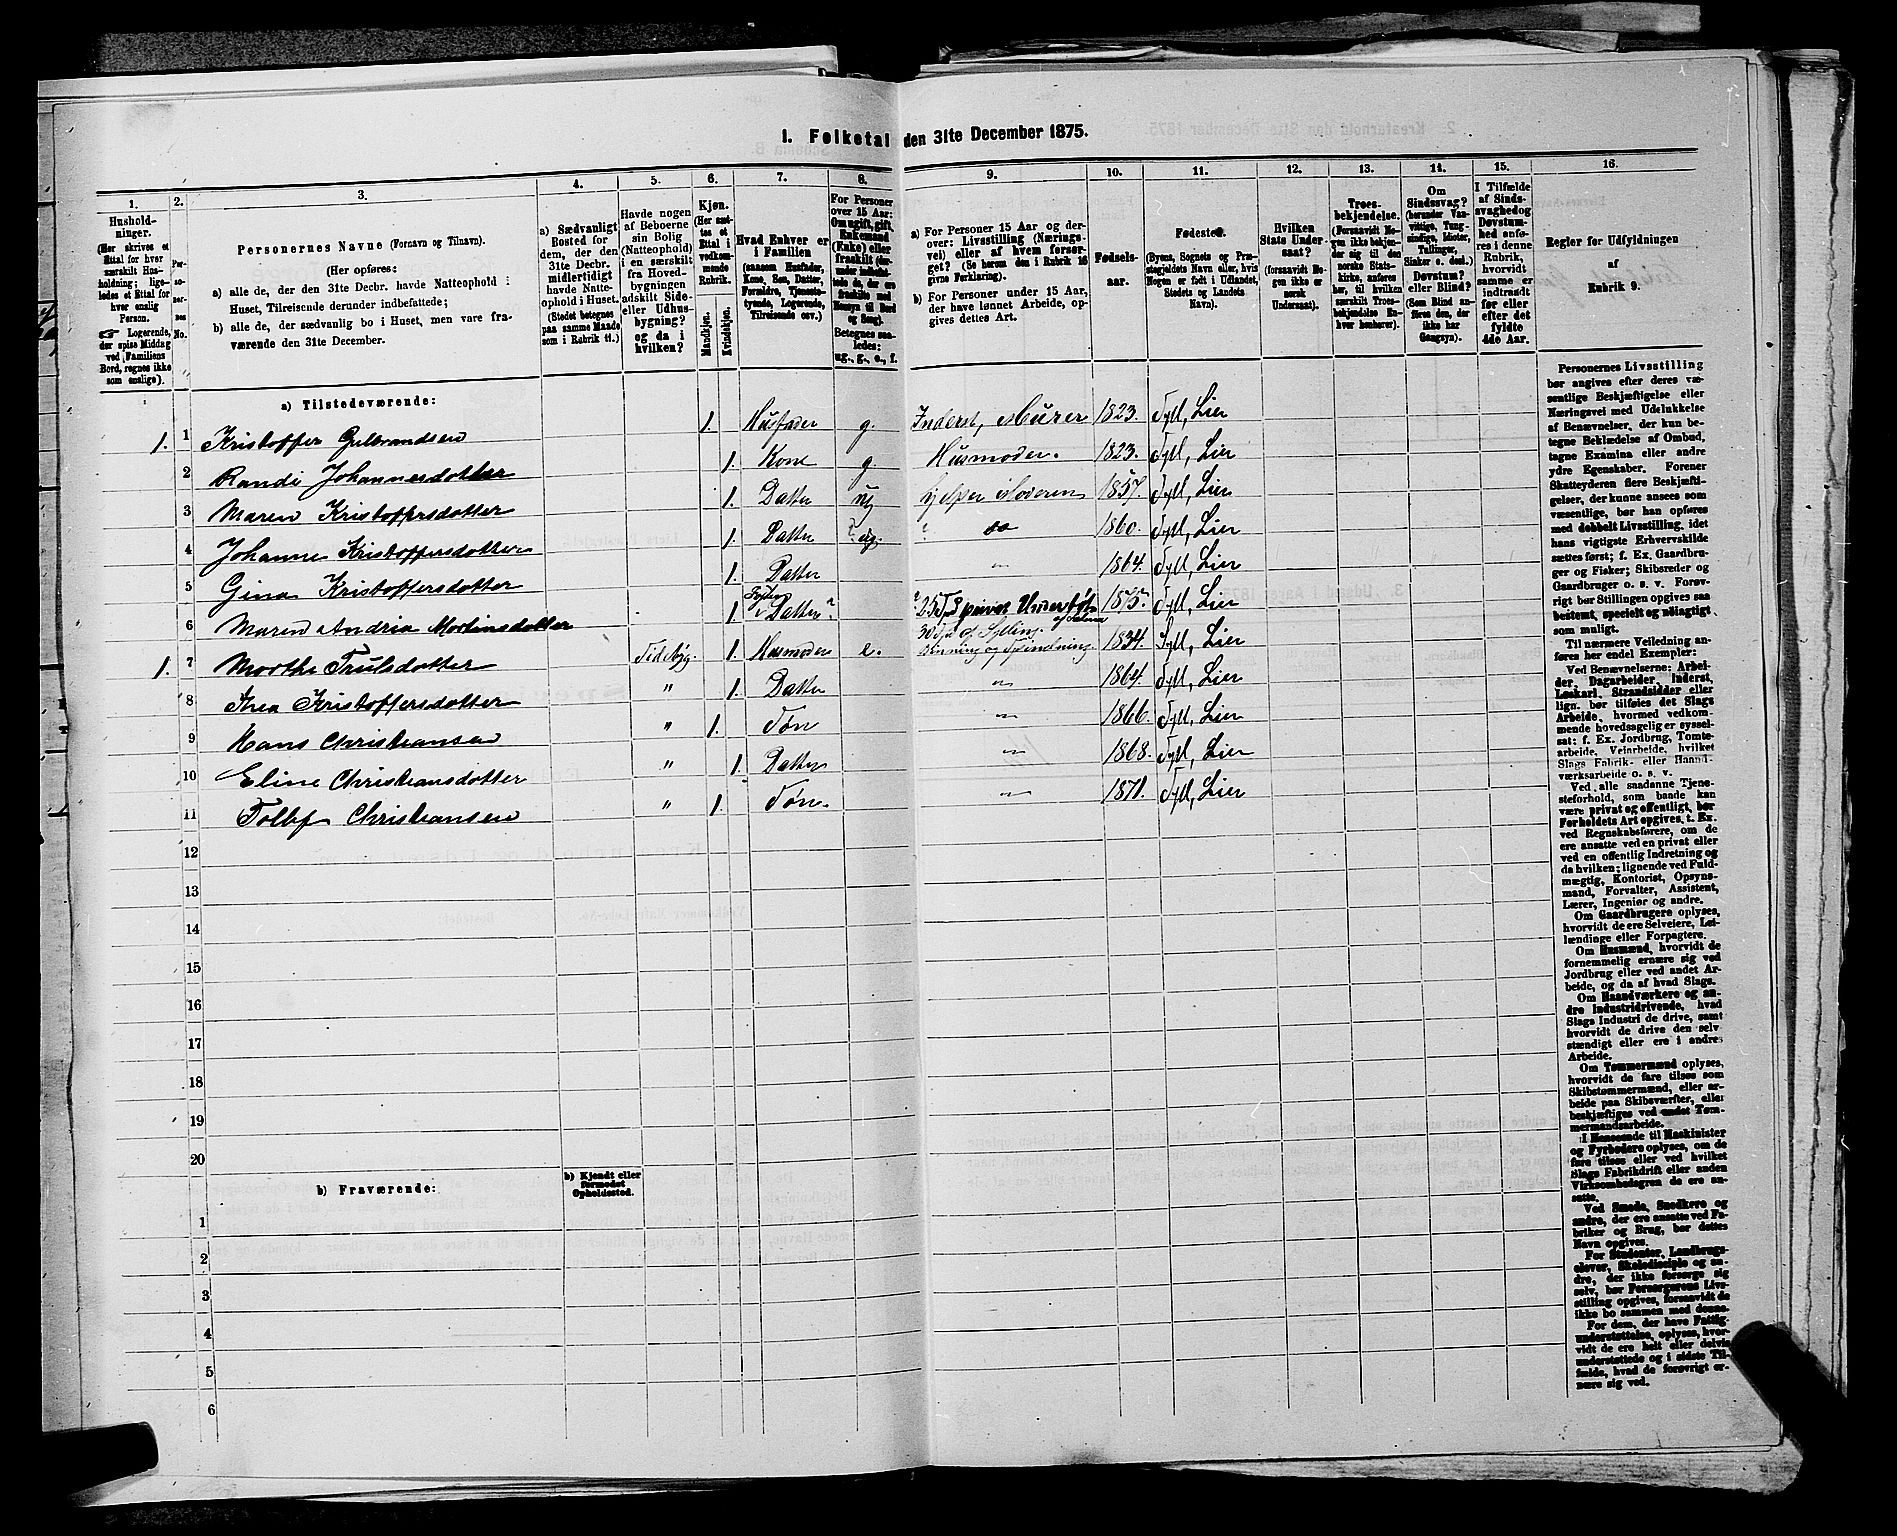 1. Folketal den 31te December 1875.
1. 2. 3. 4. 5. 6. 7. 8. 9. 10. 11. 12. 13. 14. 15. 16.
Hushold-
ninger.
(Her skrives et
Ettal for hver
særskilt Hus-
holdning; lige-
ledes et Ettal for
hver enslig
Person.
☞ Logerende,
der spise Middag
ved Familiens
Bord, regnes ikke
som enslige).
Per-
so-
ner-
nes
No.
Personernes Navne (Fornavn og Tilnavn).
(Her opføres:
a) alle de, der den 31te Decbr. havde Natteophold i
Huset, Tilreisende derunder indbefattede;
b) alle de, der sædvanlig bo i Huset, men vare fra-
værende den 31te December.
a) Sædvanligt
Bosted for
dem, der den
31te Decbr.
midlertidigt
havde Natte-
ophold i Huset.
(Stedet betegnes
paa samme Maade
som i Rubrik 11.)
Havde nogen
af Beboerne
sin Bolig
(Natteophold)
i en særskilt
fra Hoved-
bygningen
adskilt Side-
eller Udhus-
bygning?
og da i
hvilken?
Kjøn.
(Her sæt-
tes et
Ettal i
vedkom-
mende
Rubrik.
Mandkjøn.
Kvindekjøn.
Hvad Enhver er
i Familien
(saasom Husfader,
Kone, Søn, Datter,
Forældre, Tjeneste-
tyende, Logerende,
Tilreisende osv.)
For Personer
over 15 Aar:
Om ugift, gift,
Enkemand
(Enke) eller
fraskilt (der-
under indbefat-
tede de, der ere
fraskilte med
Hensyn til Bord
og Seng).
Betegnes saa-
ledes:
ug., g., e., f.
a) For Personer 15 Aar og der-
over: Livsstilling (Nærings-
vei) eller af hvem forsør-
get? (Se herom den i Rubrik 16
givne Forklaring).
b) For Personer under 15 Aar,
der have lønnet Arbeide, op-
gives dettes Art.
Fødsels-
aar.
Fødested.
(Byens, Sognets og Præ-
stegjeldets Navn eller, hvis
Nogen er født i Udlandet,
Stedets og Landets
Navn).
Hvilken
Stats Under-
saat?
(forsaavidt No-
gen ikke er
norsk
Undersaat).
Troes-
bekjendelse.
(Forsaavidt No-
gen ikke bekjen-
der sig til den
norske Stats-
kirke, anføres
her, til hvilken
særskilt Troes-
bekjendelse En-
hver henhører).
Om
Sindssvag?
(herunder Van-
vittige, Tung-
sindige, Idioter,
Tullinger,
Sinker o. desl.)
Døvstum?
eller Blind?
(Som Blind an-
føres den, der
ikke har
Gangsyn).
I Tilfælde
af Sinds-
svaghed og
Døvstum-
hed anfø-
res i denne
Rubrik,
hvorvidt
samme er
indtraadt
før eller
efter det
fyldte
4de Aar.
Regler for Udfyldningen
af
Rubrik 9.
a) Tilstedeværende:
1. 1 Kristoffer Gulbrandsen 1. Husfader g. Inderst, Murer 1823. Syll, Lier
2 Randi Johannesdotter 1. Kone g. Husmoder. 1823. Syll, Lier
3 Maren Kristoffersdotter 1. Datter ug hjelper Moderen 1857. Syll, Lier
4 Johanne Kristoffersdotter 1. Datter ? ug. " do 1860. Syll, Lier
5 Gina Kristoffersdotter 1. Datter " 1864. Syll, Lier
6 Maren Andria Mortinsdotter 1. Datter? 1875. Syll, Lier
1. 7 Morthe Trulsdotter Sidebyg. 1. Husmoder e. Binning og Spindning. 1834. Syll, Lier
8 Thea Kristoffersdotter " 1. Datter " 1864. Syll, Lier
9 Hans Christiansen " 1. Søn " 1866. Syll, Lier
10 Eline Christiansdotter " 1. Datter " 1868. Syll, Lier
11 Christiansen " 1. Søn. " 1871. Syll, Lier
12
13
14
15
16
17
18
19
20
b) Fraværende:
b) Kjendt eller
formodet
Opholdssted.
1
2
3
4
5
6
Personernes Livsstilling
bør angives efter deres væ-
sentlige Beskjæftigelse eller
Næringsvei med Udelukkelse
af Benævnelser, der kun be-
tegne Beklædelse af Ombud,
tagne Examina eller andre
ydre Egenskaber. Forener
Skatteyderen flere Beskjæfti-
gelser, der kunne ansees som
væsentlige, bør han opføres
med dobbelt Livsstilling, idet
hans vigtigste Erhvervskilde
sættes først; f. Ex. Gaardbru-
ger og Fisker; Skibsreder og
Gaardbruger o. s. v. Forøv-
rigt bør Stillingen opgives saa
bestemt, specielt og nøiagtigt
som muligt.
Til nærmere Veiledning an-
føres her endel Exempler:
Ved Benævnelserne: Arbei-
der, Dagarbeider, Inderst,
Løskarl, Strandsidder eller
lign. bør tilføies det Slags
Arbeide, hvormed vedkom-
mende hovedsagelig er syssel-
sat; f. Ex. Jordbrug, Tomte-
arbeide, Veiarbeide, hvilket
Slags Fabrik- eller Haand-
værksarbeide o. s. v.
Ved alle saadanne Tjene-
steforhold, som baade kan
være privat og offentligt, bør
Forholdets Art opgives, t. Ex.
ved Regnskabsførere, om de
ere ansatte ved en privat eller
ved en offentlig Indretning og
da hvilken; lignende ved Fuld-
mægtig, Kontorist, Opsyns-
mand, Forvalter, Assistent,
Lærer, Ingeniør og andre.
Om Gaardbrugere oplyses,
hvorvidt de ere Selveiere, Lei-
lændinge eller Forpagtere.
Om Husmænd, hvorvidt de
fornemmelig ernære sig ved
Jordbrug eller ved andet Ar-
beide, og da af hvad Slags.
Om Haandværkere og an-
dre Industridrivende, hvad
Slags Industri de drive, samt
hvorvidt de drive den selv-
stændigt eller ere i andres
Arbeide.
Om Tømmermænd oplyses,
hvorvidt de fare tilsøs som
Skibstømmermænd, eller ar-
beide paa Skibsværfter, eller
beskjæftiges ved andet Tøm-
mermandsarbeide.
I Henseende til Maskinister
og Fyrbødere oplyses, om de
fare tilsøs eller ved hvilket
Slags Fabrikdrift eller anden
Virksomhedsgren de ere an-
satte.
Ved Smede, Snedkere og
andre, der ere ansatte ved Fa-
briker og Brug, bør dettes
Navn opgives.
For Studenter, Landbrugs-
elever, Skoledisciple og an-
dre, der ikke forsørge sig
selv, bør Forsørgerens Livs-
stilling opgives, forsaavidt de
ikke bo sammen med denne.
For dem, der have Fattig-
understøttelse, oplyses, hvor-
vidt de ere helt eller delvis
understøttede og i sidste Til-
fælde, hvad de forøvrigt er-
nære sig ved.